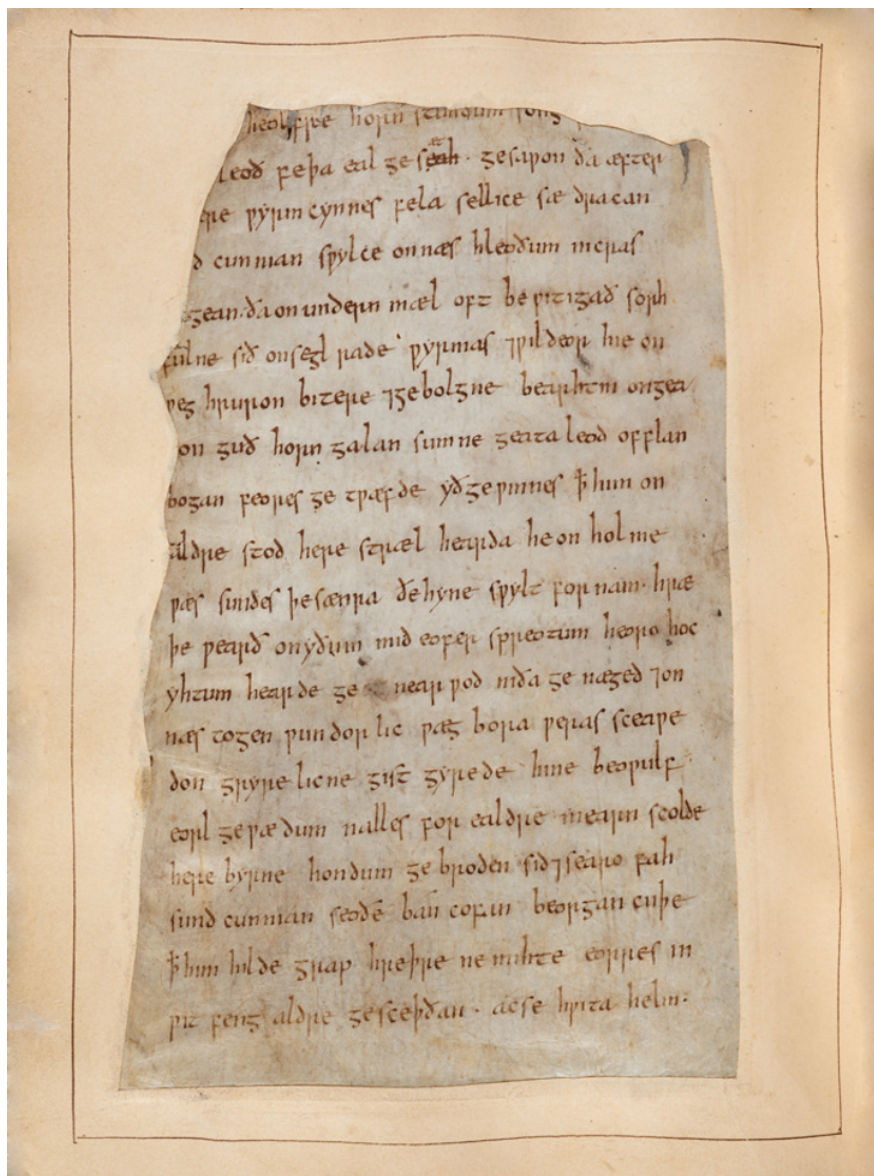 heolfre horn stundum song
leod feþa eal ge sæt · gesaƿon ða æfter
ƿyrm cynnes fela sellice sæ dracan
cunnian sƿylce on næs hleoðum nicras
ða on undern mæl oft be ƿitigað sorh
fulne sið on segl rade ƿyrmas ⁊ ƿildeor hie on
ƿeg hruron bitere ⁊ ge bolgne bearhtm ongea
on guð horn galan sumne geata leod of flan
bogan feores ge tƿæfde yð ge ƿinnes ꝥ him on
aldre stod here stræl hearda he on holme
ƿæs sundes þe sænra ðe hyne sƿylt fornam · hræ
þe ƿearð on yðum mid eofer spreotum heoro hoc
yhtum hearde ge near ƿod niða ge næged ⁊ on
næs togen ƿundor lic ƿæg bora ƿeras sceaƿe
don gryre licne gist gyrede hine beoƿulf ·
eorl ge ƿædum nalles for ealdre mearn scolde
here byrne hondum ge broden sid ⁊ searo fah
sund cunnian seo ðe ban cofan beorgan cuþe
ꝥ him hilde grap hreþre ne mihte eorres in
ƿit feng aldre ge sceþðan · ac se hƿita helm ·